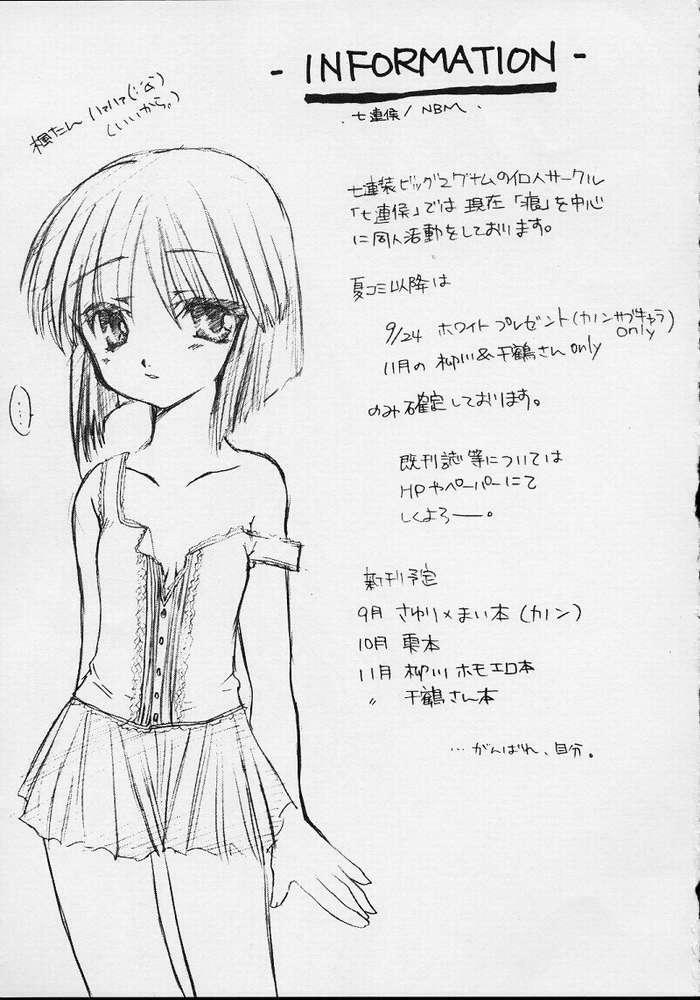 - INFORMATION -
七連侯 / NBM
楓たん ハァハァ(;´Д`)
(いいから。)
七連装ビッグマグナムの個人サークル
「七連侯」では 現在「痕」を中心
に同人活動をしております。
夏コミ以降は
9/24 ホワイトプレゼント(カノンサブキャラ)
only
11月の 柳川&千鶴さん only
のみ確定しております。
既刊誌等については
HPやペーパーにて
しくよろー。
新刊予定
9月 さゆり×まい本 (カノン)
10月 雫本
11月 柳川 ホモエロ本
〃 千鶴さん本
…がんばれ、自分。
(…)